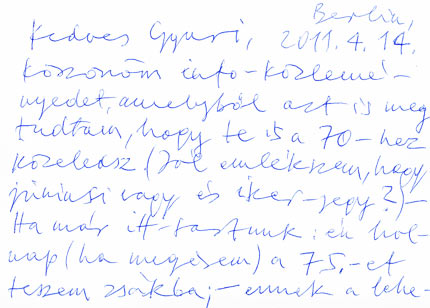 Berlin,
Kedves Gyuri, 2011. 4. 14.
köszönöm info-közlemé-
nyedet, amelyből azt is meg
tudtam, hogy te is a 70-hez
közeledsz (Jól emlékszem, hogy
júniusi vagy és iker-jegy?)-
Ha már itt-tartunk: én hol-
nap (ha megérem) a 75.-et
teszem zsákba; - ennek a lehe-